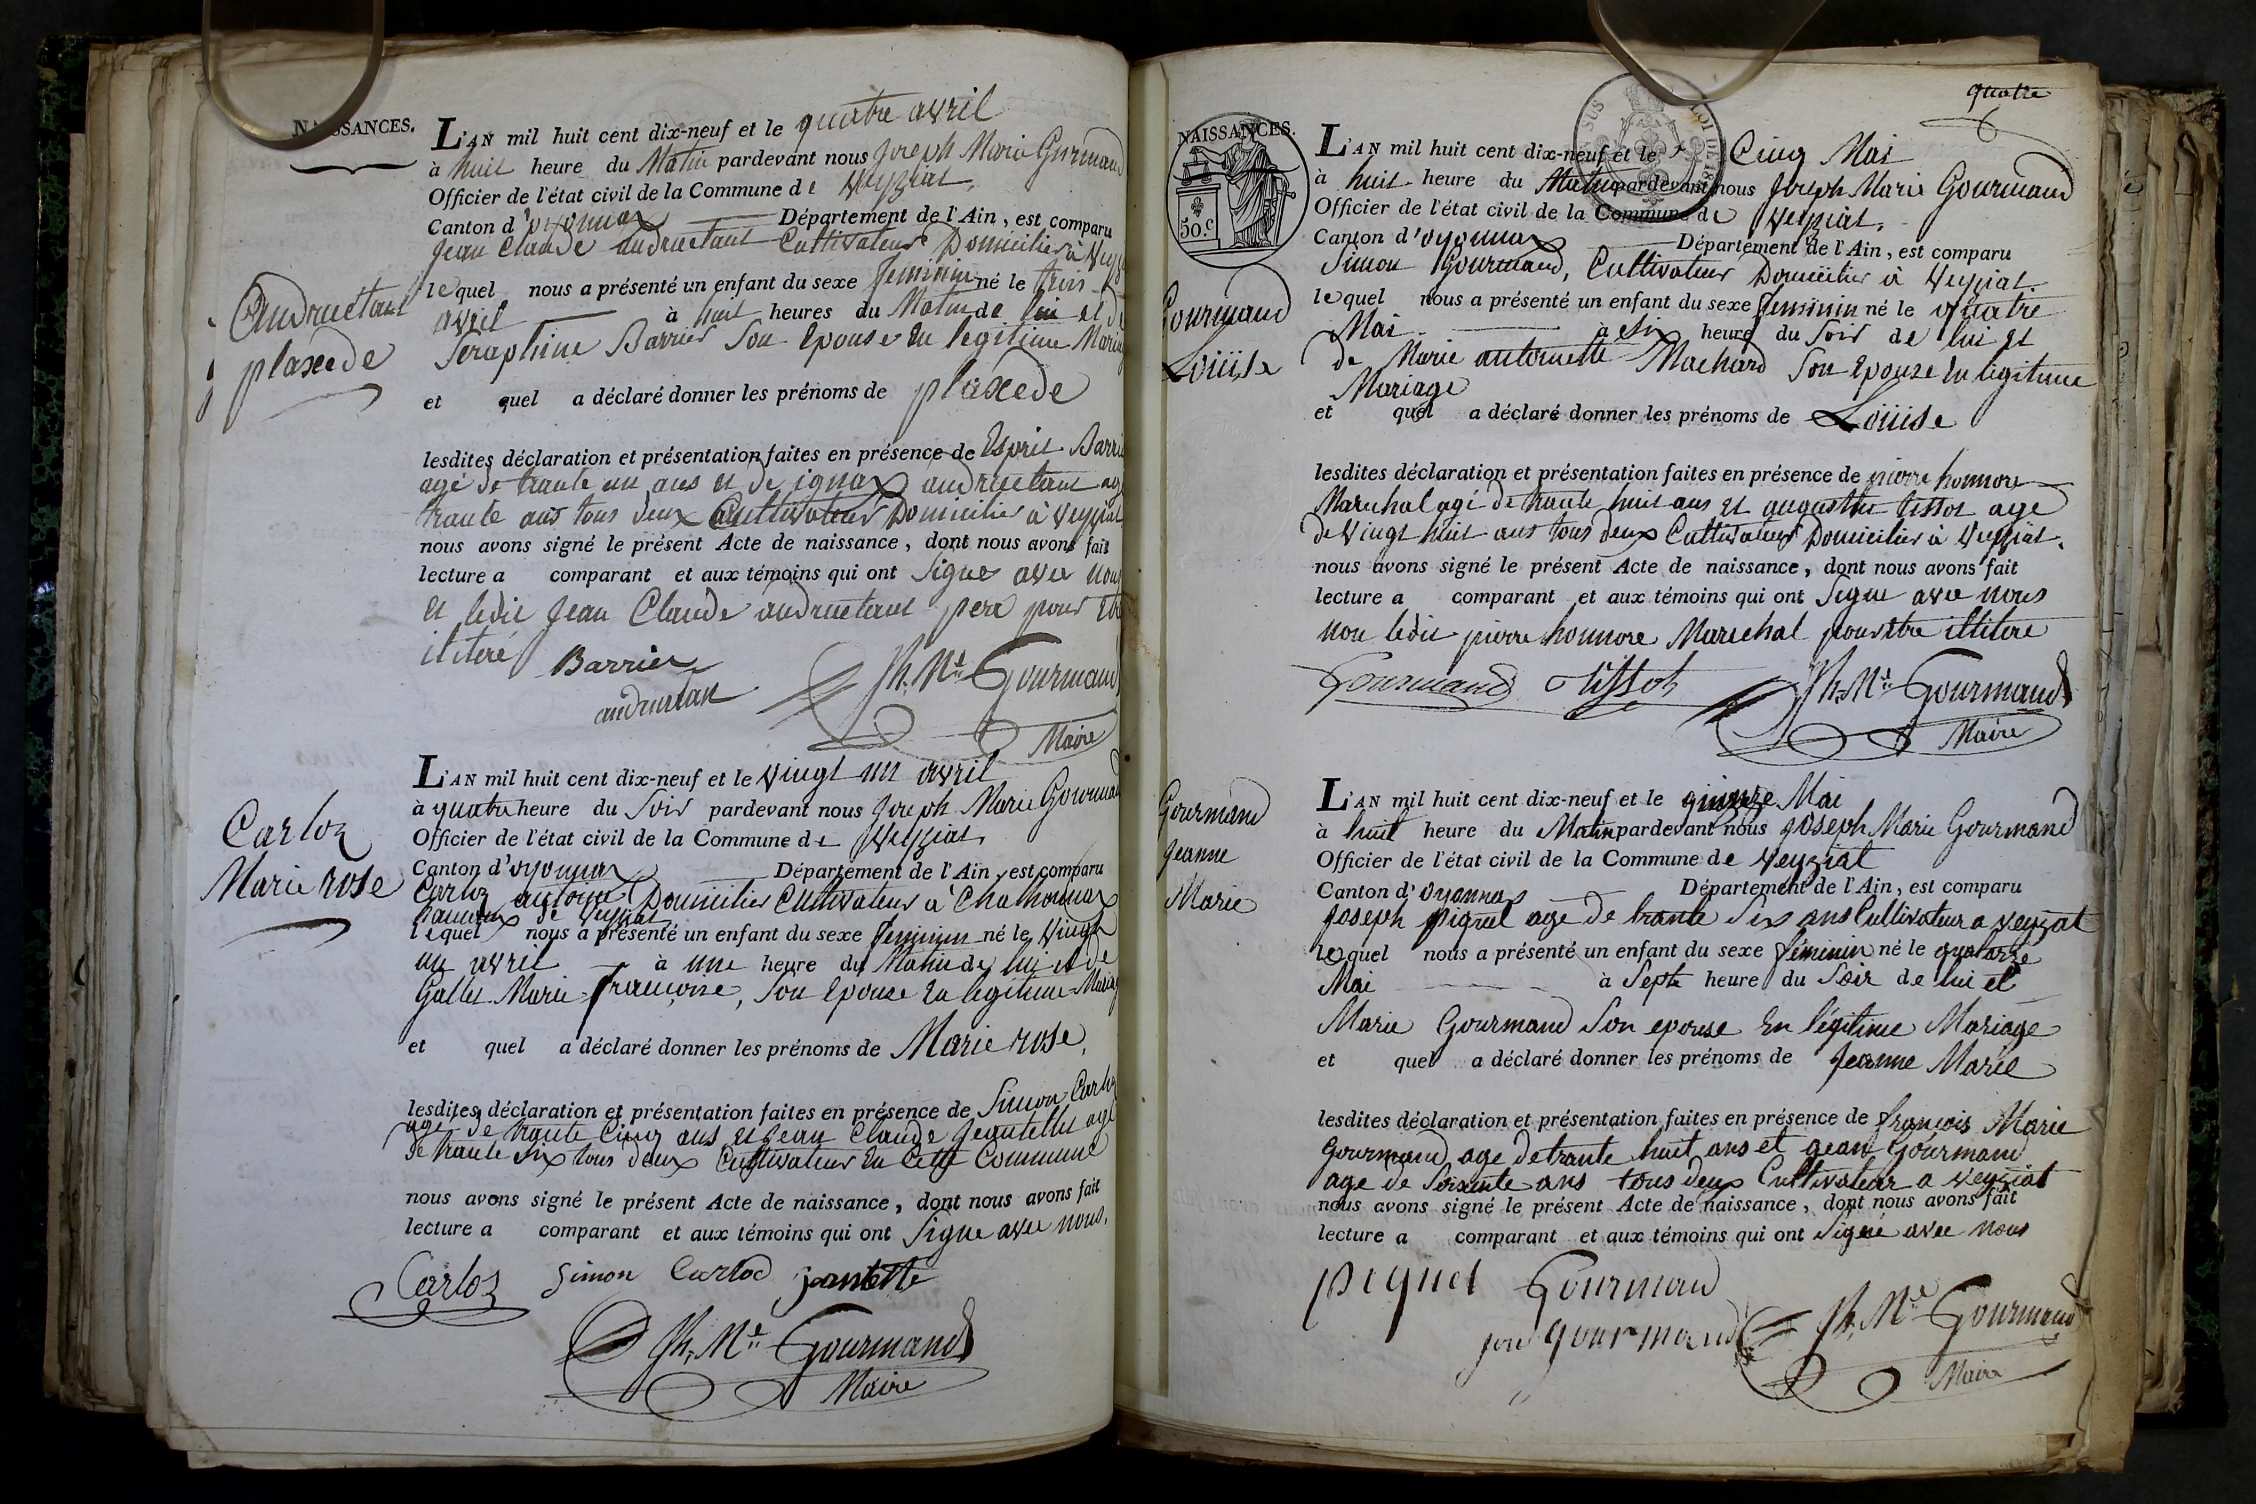 NAISSANCES.
L'AN mil huit cent dix-neuf et le quatre avril
à huit heure du Matin pardevant nous Joseph Marie Gurmand
Officier de l'état civil de la Commune de Veyziat,
Canton d'oyonnax Département de l'Ain, est comparu
Jean Claude audruetant Cultivateur Domicilier à
lequel nous a présenté un enfant du sexe feminin né le trois
avril à huit heures du Matin de lui et de
Seraphine Barrier Son Epouse En legitime Mariag
et quel a déclaré donner les prénoms de plaxede
lesdites déclaration et présentation faites en présence de Esprit Barrie
agé de trante un ans et de ignax audruetant agé
trante ans tous deux Cultivateur Domicilier à Veyziat
nous avons signé le présent Acte de naissance, dont nous avons fait
lecture a comparant et aux témoins qui ont Signe avec nous
et ledit Jean Claude audruetant pera pour
ilitéré
Barrier
audruetan
Jh. Mie Gourmand
Maire
Audruetant
plaxede
L'AN mil huit cent dix-neuf et le Vingt un avril
à quatre heure du Soir pardevant nous Joseph Marie Gourmand
Officier de l'état civil de la Commune de Veyziat,
Canton d'oyonnax Département de l'Ain, est comparu
Carloz antoine Domicilier Cultivateur à Chatonnax
hameaux de Veyziat
lequel nous a présenté un enfant du sexe feminin né le Vingt
un avril à une heure du Matin de lui et de
Gallet Marie françoise, Son Epouse En legitime Mariag
et quel a déclaré donner les prénoms de Marie rose,
lesdites déclaration et présentation faites en présence de Simon Carloz
agé de trante Cinq ans et Jean Claude Jeantellet agé
de trante Six tous deux Cultivateur En Cette Commune
nous avons signé le présent Acte de naissance, dont nous avons fait
lecture a comparant et aux témoins qui ont Signe avec nous,
Carloz Simon Carloz
Jh. Mie Gourmand
Maire
Carloz
Marie rose
quatre
NAISSANCES.
50.c
L'AN mil huit cent dix-neuf et le Cinq Mai
à huit heure du Matin pardevant nous Joseph Marie Gourmand
Officier de l'état civil de la Commune de Veyziat,
Canton d'oyonnax Département de l'Ain, est comparu
Simon Gourmand, Cultivateur Domicilier à Veyziat.
lequel nous a présenté un enfant du sexe feminin né le quatre
Mai à Six heure du Soir de lui et
de Marie antoinette Machard Son Epouse En legitime
Mariage
et quel a déclaré donner les prénoms de Loüise
lesdites déclaration et présentation faites en présence de pierre honnore
Marechal agé de trante huit ans et augustin tissot age
de Vingt huit ans tous deux Cultivateur Domicilier à Veyziat.
nous avons signé le présent Acte de naissance, dont nous avons fait
lecture a comparant et aux témoins qui ont Signe avec nous
non ledit pierre honnore Marechal pour être illitere
Gourmand tissot
Jh. Mie Gourmand
Maire
Gourmand
Loüise
L'AN mil huit cent dix-neuf et le quinze Mai
à huit heure du Matin pardevant nous Joseph Marie Gourmand
Officier de l'état civil de la Commune de Veyziat
Canton d'oyonnax Département de l'Ain, est comparu
Joseph piquet age de trante Six ans Cultivateur a veyziat
lequel nous a présenté un enfant du sexe féminin né le quatorze
Mai à Septe heure du Soir de lui et
Marie Gourmand Son epouse En légitime Mariage
et quel a déclaré donner les prénoms de Jeanne Marie
lesdites déclaration et présentation faites en présence de françois Marie
Gourmand age de trante huit ans et gean Gourmand
age de Soixente ans tous deux Cultivateur a veyziat
nous avons signé le présent Acte de naissance, dont nous avons fait
lecture a comparant et aux témoins qui ont Signé avec nous
piquet Gourmand
gourmand
Jh. Mie Gourmand
Maire
Gourmand
Jeanne
Marie